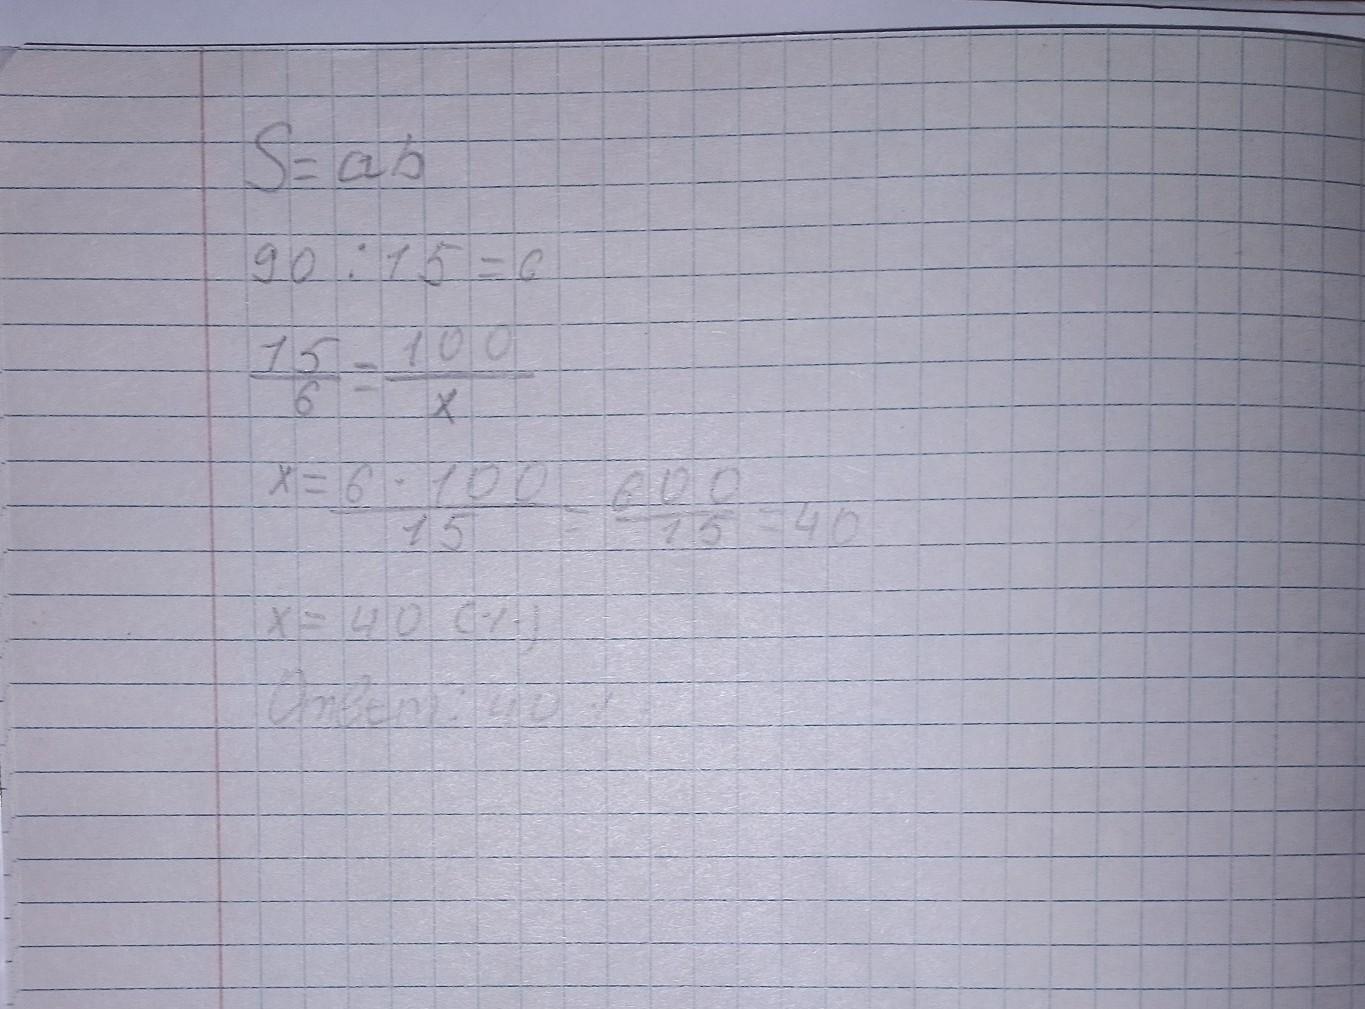 S = ab
90 : 15 = 6
15/6 = 100/x
x = 6 · 100/15 = 600/15 = 40
x = 40 (%)
Ответ: 40 %